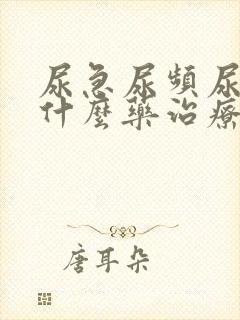 尿急尿頻尿
什麼藥治療
唐耳朵